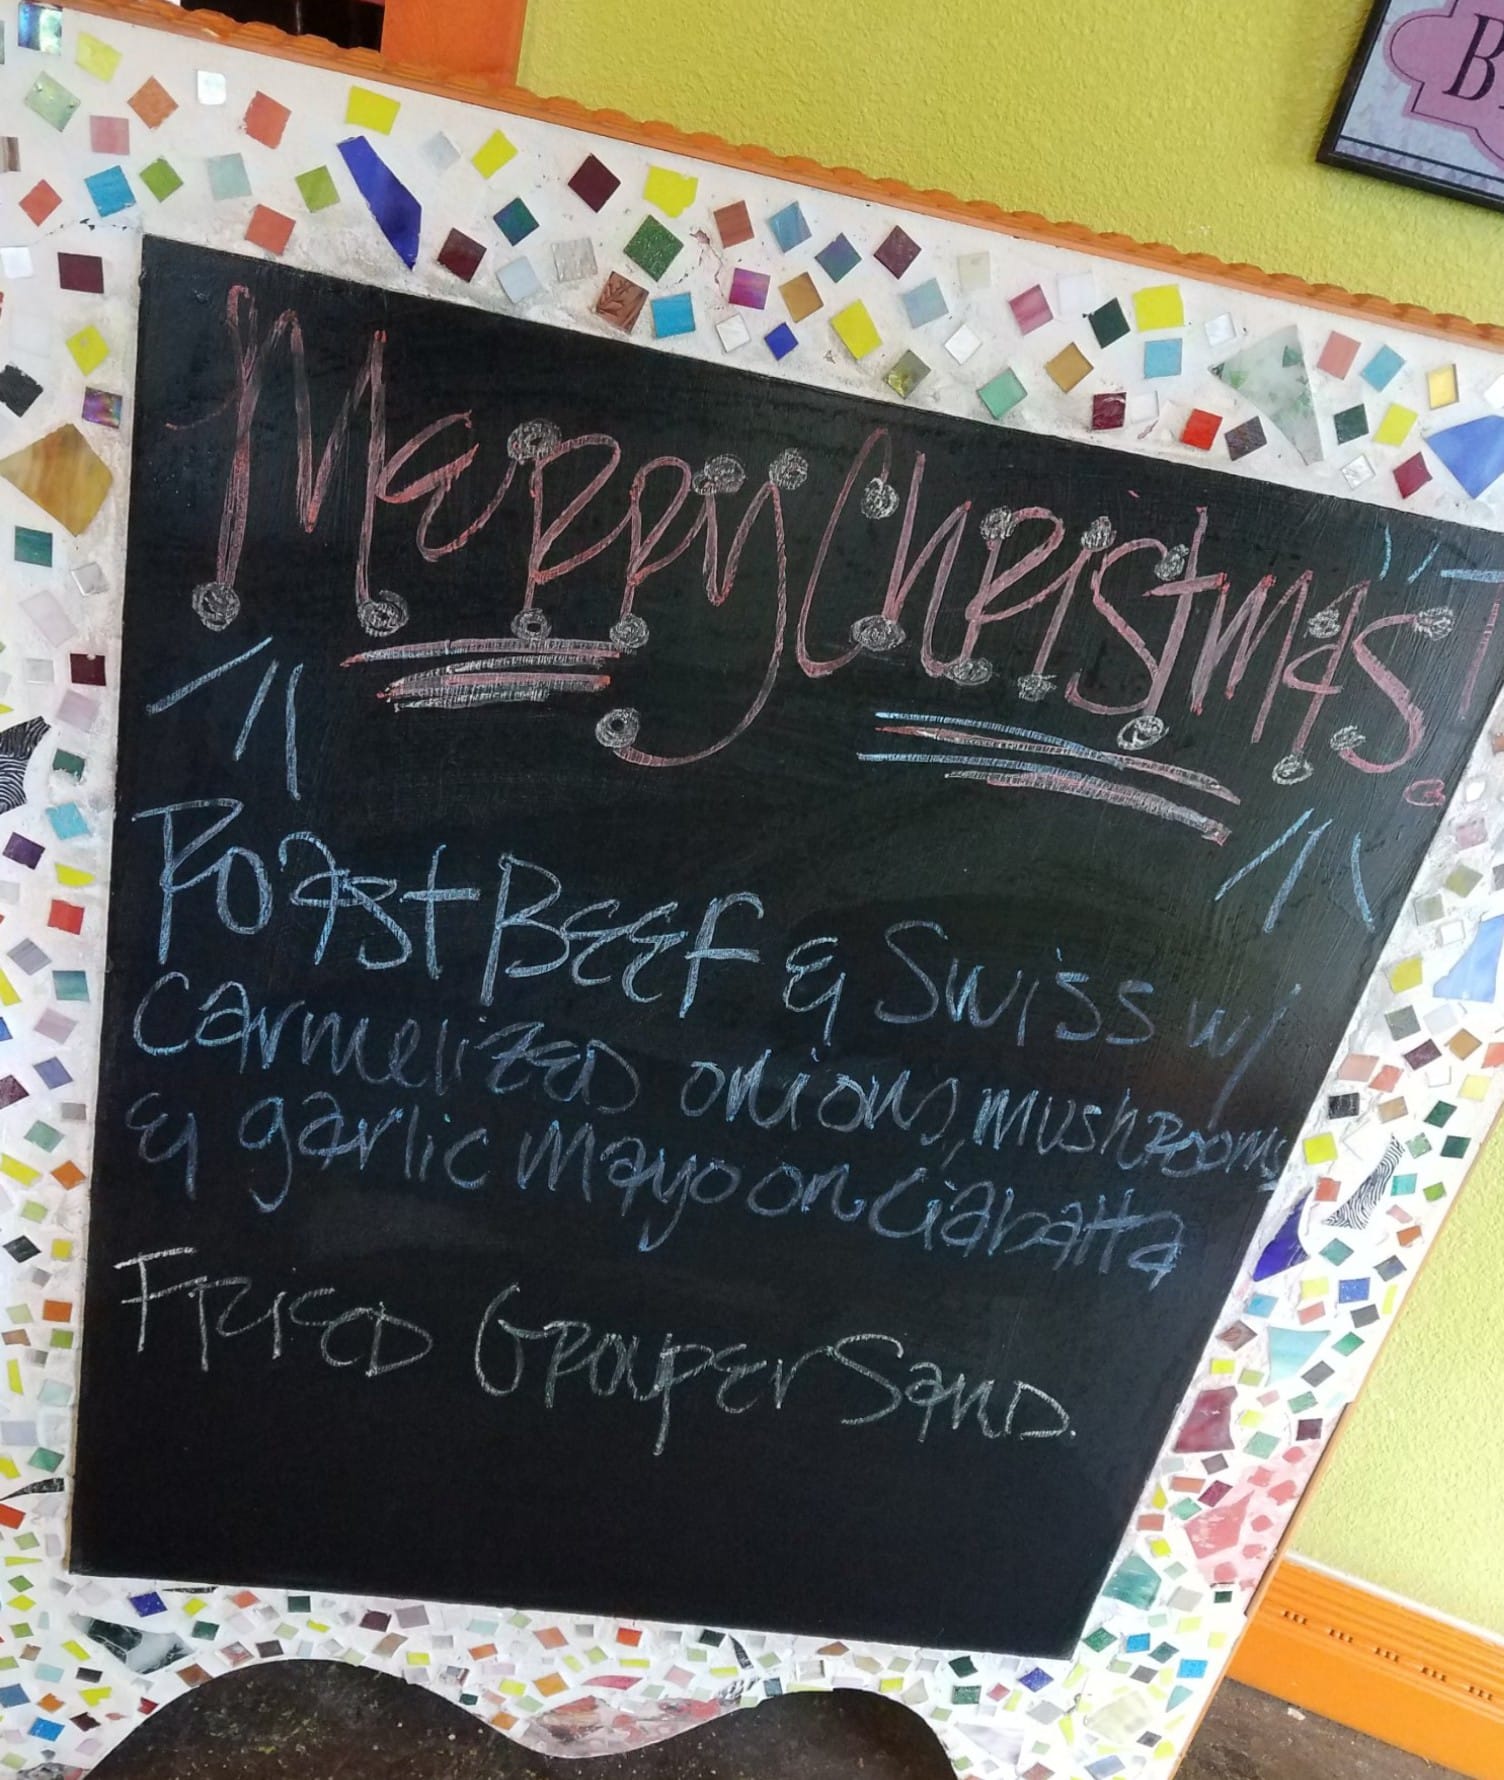 Merry Christmas!
Roast BEEF & Swiss w/
carmelizED onions, mushrooms
& garlic mayo on ciabatta
FriED GrouPEr SanD.